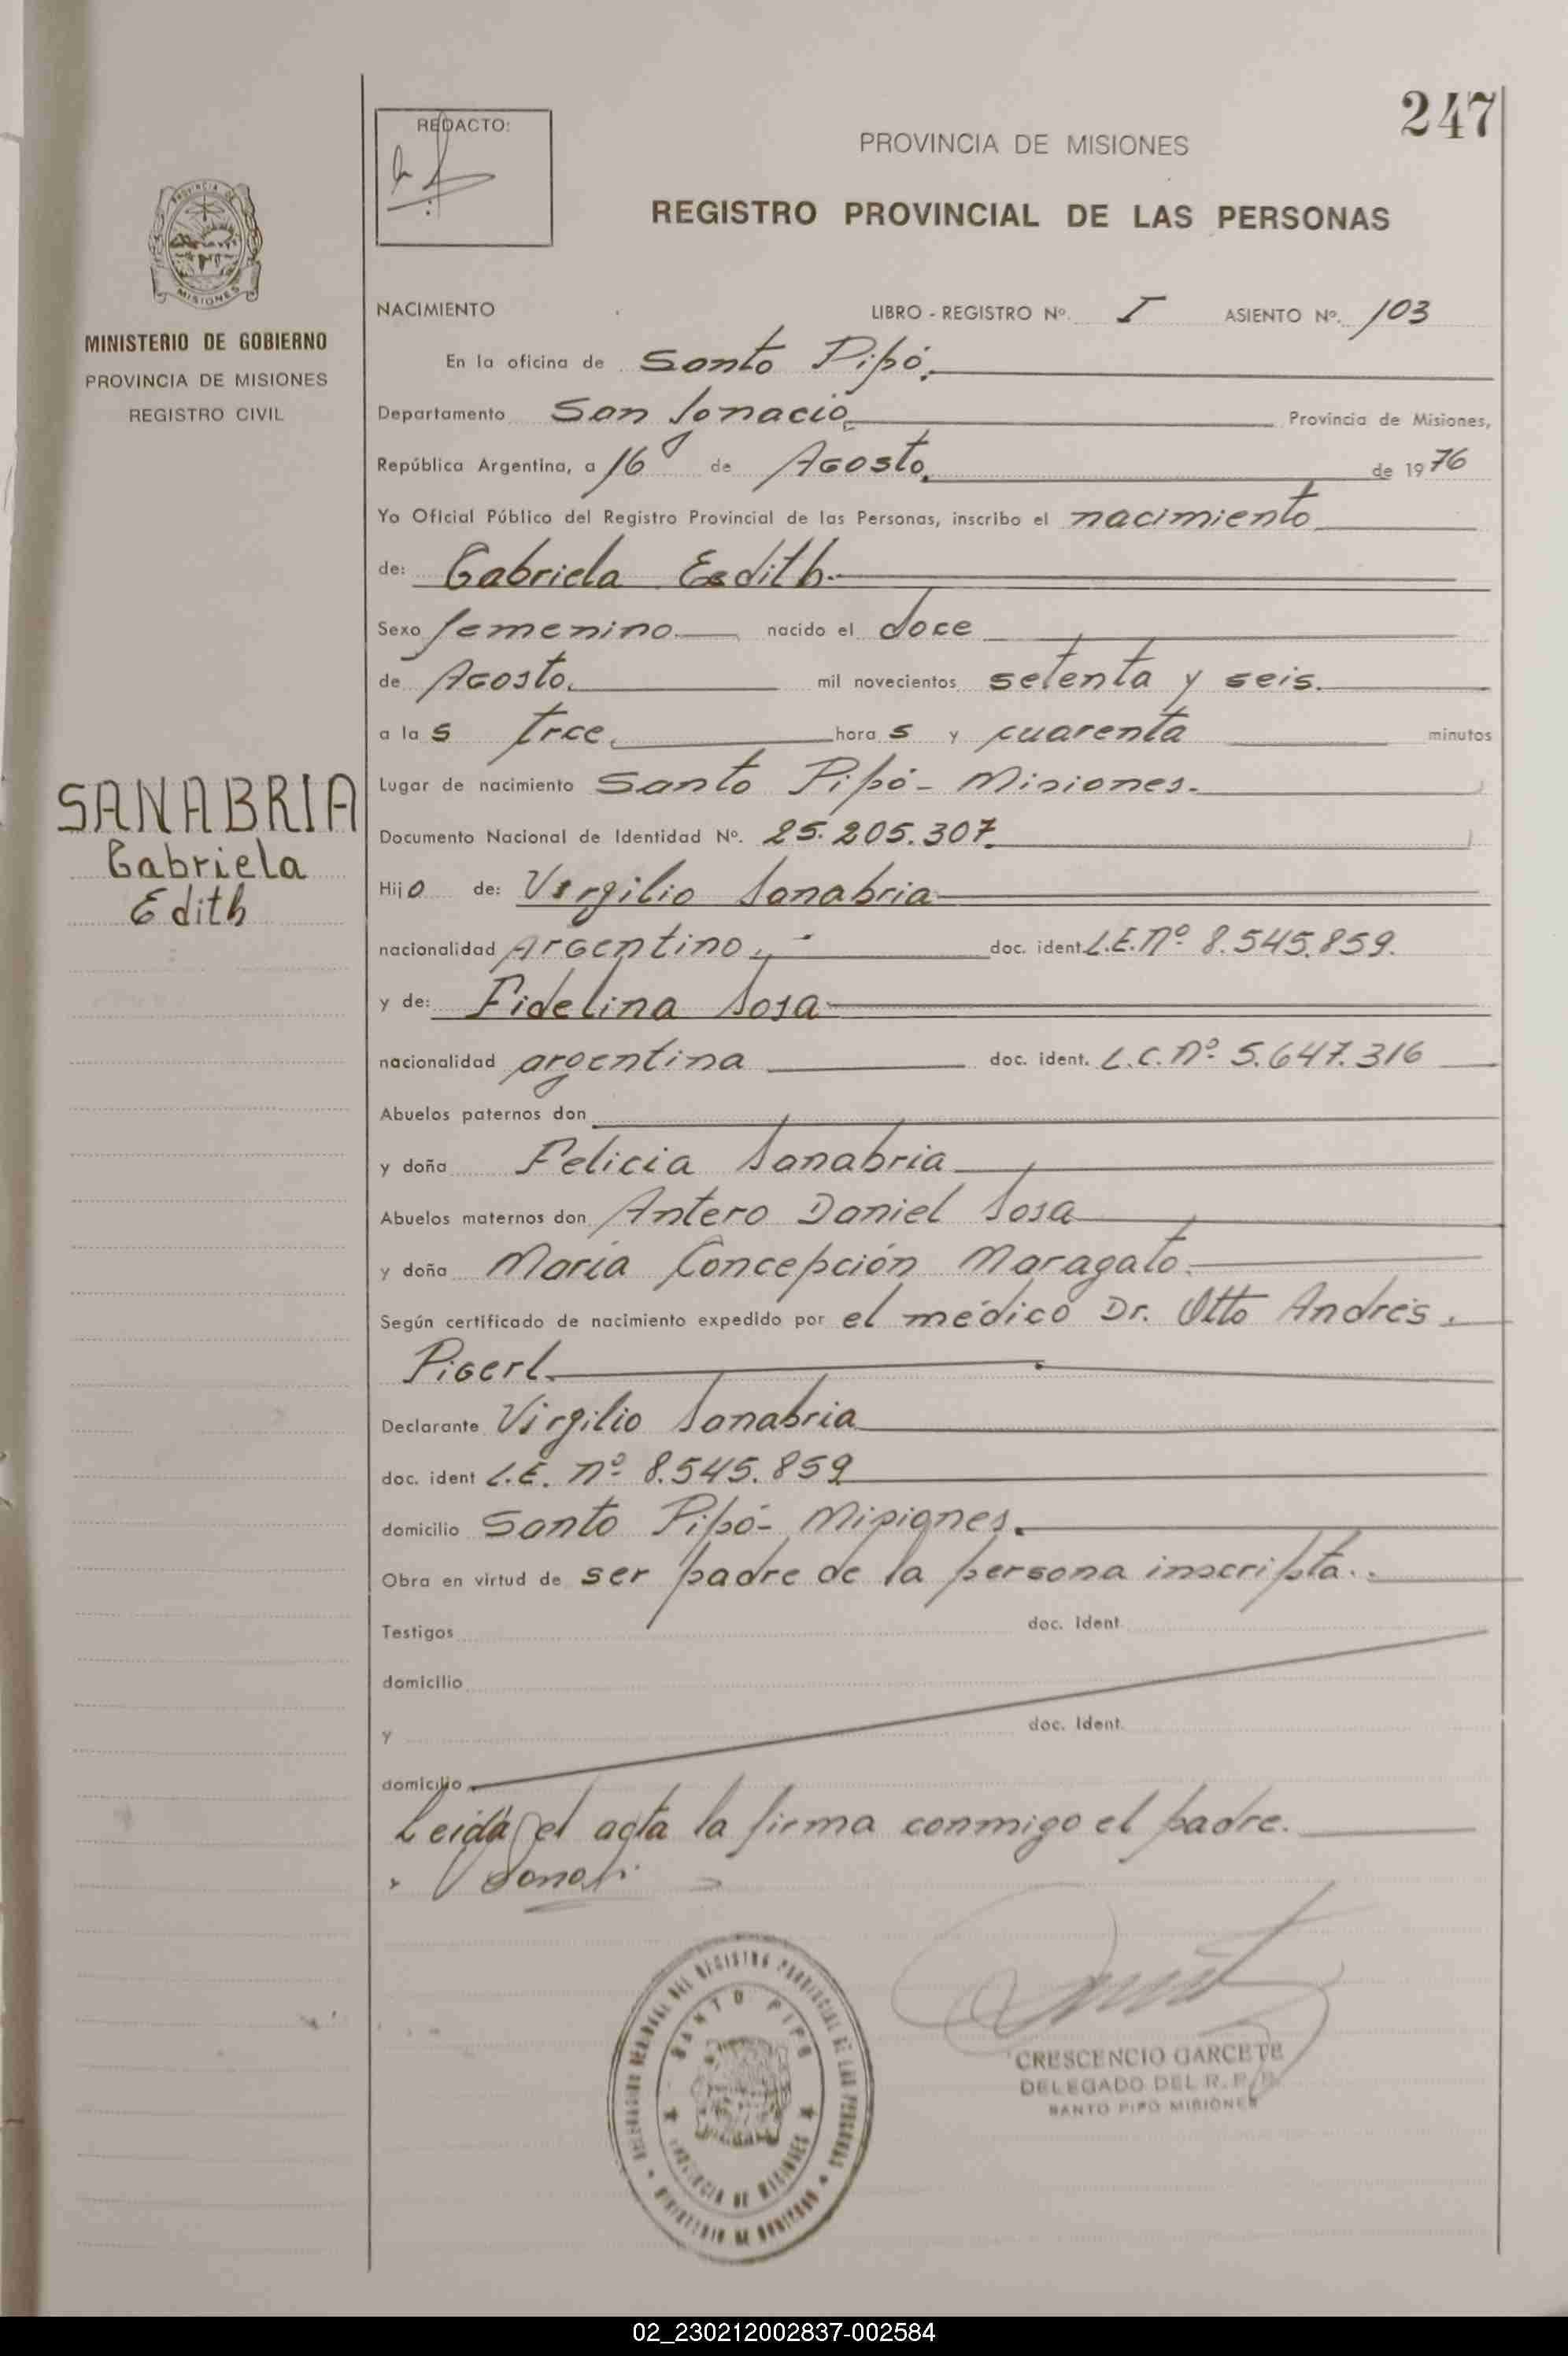 247
REDACTO:
PROVINCIA DE MISIONES
REGISTRO PROVINCIAL DE LAS PERSONAS
PROVINCIA DE
MISIONES
MINISTERIO DE GOBIERNO
PROVINCIA DE MISIONES
REGISTRO CIVIL
NACIMIENTO LIBRO - REGISTRO Nº. I ASIENTO Nº. 103
En la oficina de Santo Pipó.
Departamento San Ignacio Provincia de Misiones,
República Argentina, a 16 de Agosto. de 1976
Yo Oficial Público del Registro Provincial de las Personas, inscribo el nacimiento
de: Gabriela Eedith.
Sexo femenino. nacido el doce
de Agosto. mil novecientos setenta y seis.
a la s trce. hora s y cuarenta minutos
Lugar de nacimiento Santo Pipó - Misiones.
Documento Nacional de Identidad Nº. 25.205.307.
SANABRIA
Gabriela
Edith
Hijo de: Virgilio Sanabria
nacionalidad Argentino doc. ident. L.E. Nº 8.545.859.
y de: Fidelina Sosa
nacionalidad argentina doc. ident. L.C. Nº 5.647.316
Abuelos paternos don
y doña Felicia Sanabria
Abuelos maternos don Antero Daniel Sosa
y doña Maria Concepción Maragato.
Según certificado de nacimiento expedido por el médico Dr. Otto Andrés.
Pigerl.
Declarante Virgilio Sanabria
doc. ident L.E. Nº 8.545.859
domicilio Santo Pipó - Misiones.
Obra en virtud de ser padre de la persona inscripta.
Testigos doc. Ident.
domicilio
y doc. Ident.
domicilio
Leida el acta la firma conmigo el padre.
DELEGACION DEL REGISTRO PROVINCIAL DE LAS PERSONAS
SANTO PIPO
PROVINCIA DE MISIONES
MINISTERIO DE GOBIERNO
CRESCENCIO GARCETE
DELEGADO DEL R. P. P.
SANTO PIPO MISIONES
02_230212002837-002584